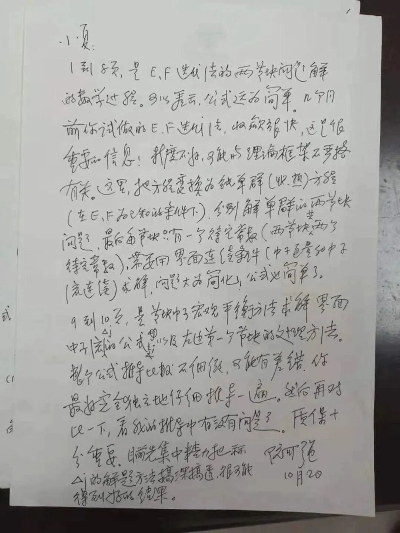 小夏:
1到8页,是E、F迭代法的两节块问题解
的数学过程。可以看出,公式还为简单。几个月
前你试做的E、F迭代法,收敛很快,这是很
重要的信息。精度不好,可能与理论框架不严格
有关。这里,把方程变换为纯单群(似热)方程
(在E、F为已知的条件下),分别解单群的两节块
问题,最后每节块只有一个待定常数(两节块两个
待定常数),需要用界面连续条件(中子通量和中子
流连续)求解,问题大为简化,公式也简单了。
9到10页,是节块中子宏观平衡方法求解界面
中子流的公式以及左边第一个节块的处理方法。
整个公式推导比较不细致,可能有差错。你
最好完全独立地仔细推导一遍。然后再对
比一下,看我的推导中有没有问题了。质保十
分重要。集中精力把
的解题方法搞深搞透,很可能
得到好的结果。
10月20